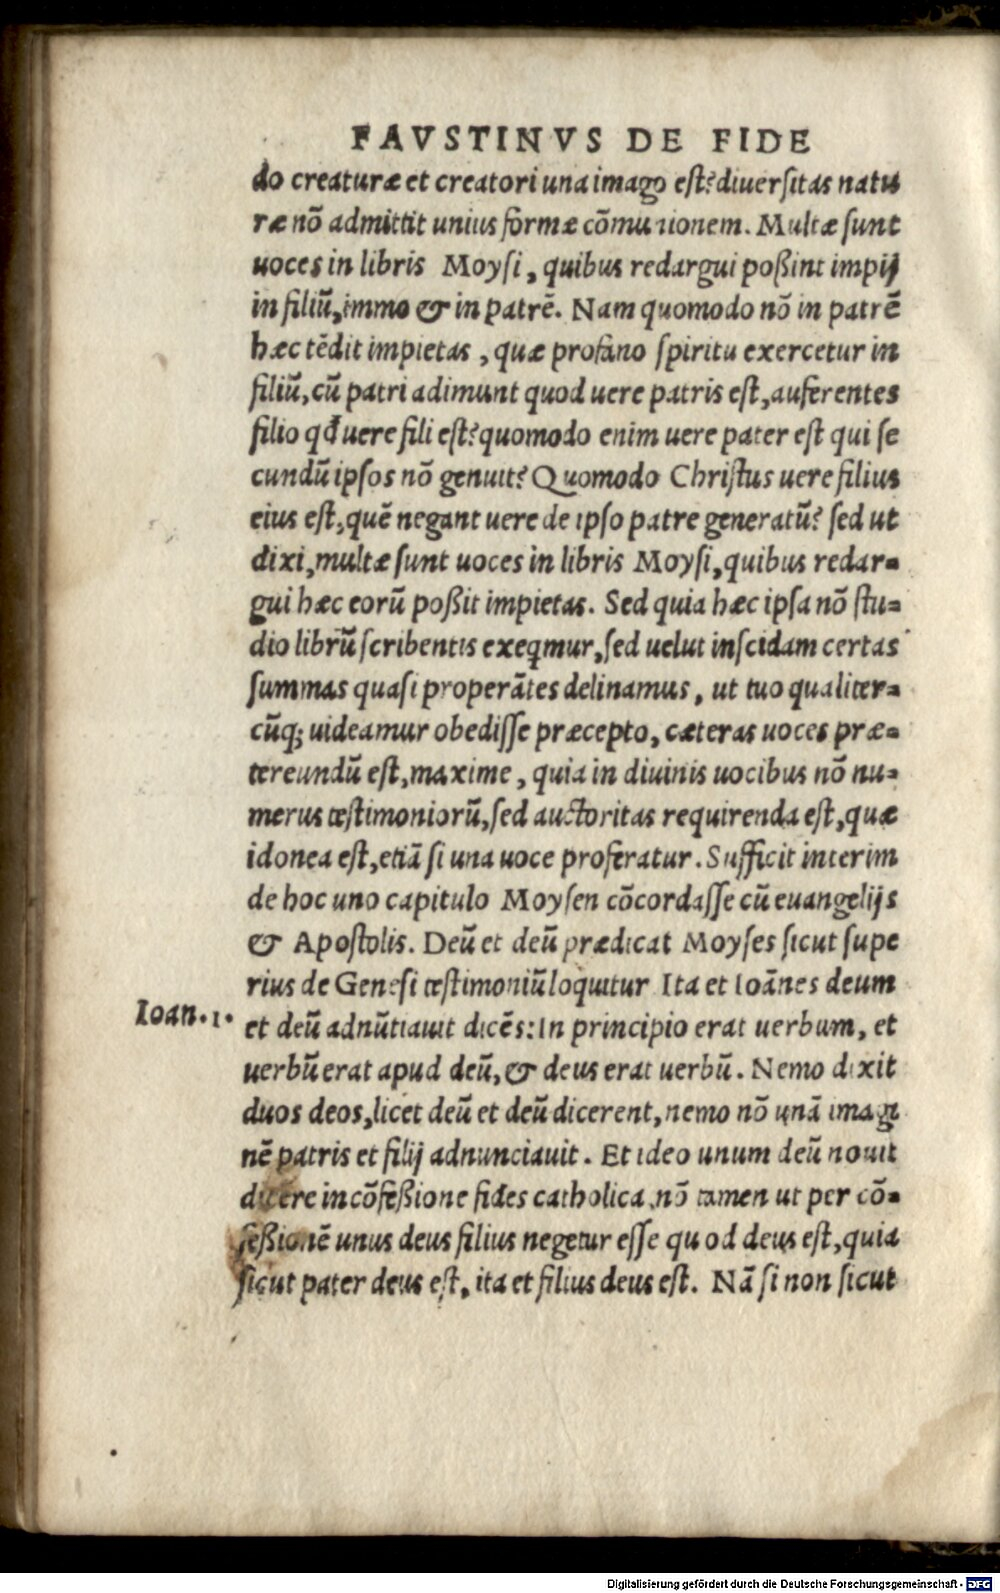 FAVSTINVS DE FIDE
do creaturæ et creatori una imago est? diuersitas natu
ræ nõ admittit unius formæ cõmunionem. Multæ sunt
uoces in libris Moysi, quibus redargui poßint impij
in filiũ, immo & in patrẽ. Nam quomodo nõ in patrẽ
hæc tẽdit impietas, quæ profano spiritu exercetur in
filiũ, cũ patri adimunt quod uere patris est, auferentes
filio qđ uere fili est? quomodo enim uere pater est qui se
cundũ ipsos nõ genuit? Quomodo Christus uere filius
eius est, quẽ negant uere de ipso patre generatũ? sed ut
dixi, multæ sunt uoces in libris Moysi, quibus redar-
gui hæc eorũ poßit impietas. Sed quia hæc ipsa nõ stu-
dio librũ scribentis exeqmur, sed uelut inscidam certas
summas quasi properãtes delinamus, ut tuo qualiter-
cũq; uideamur obedisse præcepto, cæteras uoces præ-
tereundũ est, maxime, quia in diuinis uocibus nõ nu-
merus testimoniorũ, sed auctoritas requirenda est, quæ
idonea est, etiã si una uoce proferatur. Sufficit interim
de hoc uno capitulo Moysen cõcordasse cũ euangelijs
& Apostolis. Deũ et deũ prædicat Moyses sicut supe
rius de Genesi testimoniũ loquitur Ita et Ioãnes deum
Ioan.1.
et deũ adnũtiauit dicẽs: In principio erat uerbum, et
uerbũ erat apud deũ, & deus erat uerbũ. Nemo dixit
duos deos, licet deũ et deũ dicerent, nemo nõ unã imagi
nẽ patris et filij adnunciauit. Et ideo unum deũ nouit
dicere in cõfeßione fides catholica, nõ tamen ut per cõ-
feßionẽ unus deus filius negetur esse quod deus est, quia
sicut pater deus est, ita et filius deus est. Nã si non sicut
Digitalisierung gefördert durch die Deutsche Forschungsgemeinschaft - DFG